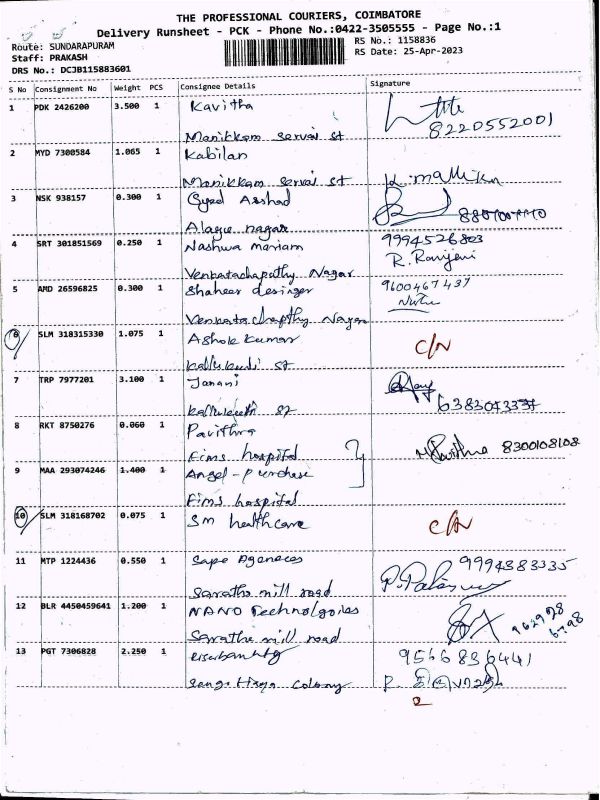 THE PROFESSIONAL COURIERS, COIMBATORE
Delivery Runsheet - PCK - Phone No.:0422-3505555 - Page No.:1
Route: SUNDARAPURAM
RS No.: 1158836
Staff: PRAKASH
RS Date: 25-Apr-2023
DRS No.: DCJB115883601
S No Consignment No Weight PCS Consignee Details Signature
1 PDK 2426200 3.500 1 Kavitha
Manikkam servai st 8220552001
2 MYD 7300584 1.065 1 Kabilan
Manikkam servai st K. mallika
3 NSK 938157 0.300 1 Syed Asshad
Alagu nagar
4 SRT 301851569 0.250 1 Nashwa mariam 9994526803
Venkatachapathy Nagar R. Ranjani
5 AMD 26596825 0.300 1 Shaheer desinger 9600467437
Venkata chapthy Nagar
6 SLM 318315330 1.075 1 Ashok kumar C/N
st
7 TRP 7977201 3.100 1 Janani
st
8 RKT 8750276 0.060 1 Pavithra
Fims hospital Pavithra 8300108108
9 MAA 293074246 1.400 1 Angel - purchase
Fims hospital
10 SLM 318168702 0.075 1 Sm healthcare C/N
11 MTP 1224436 0.550 1 Sape Agences 9994383335
Sarathe mill road
12 BLR 4450459641 1.200 1 NANO Technolgories
Sarathe mill road
13 PGT 7306828 2.250 1 9566836441
Colony
2